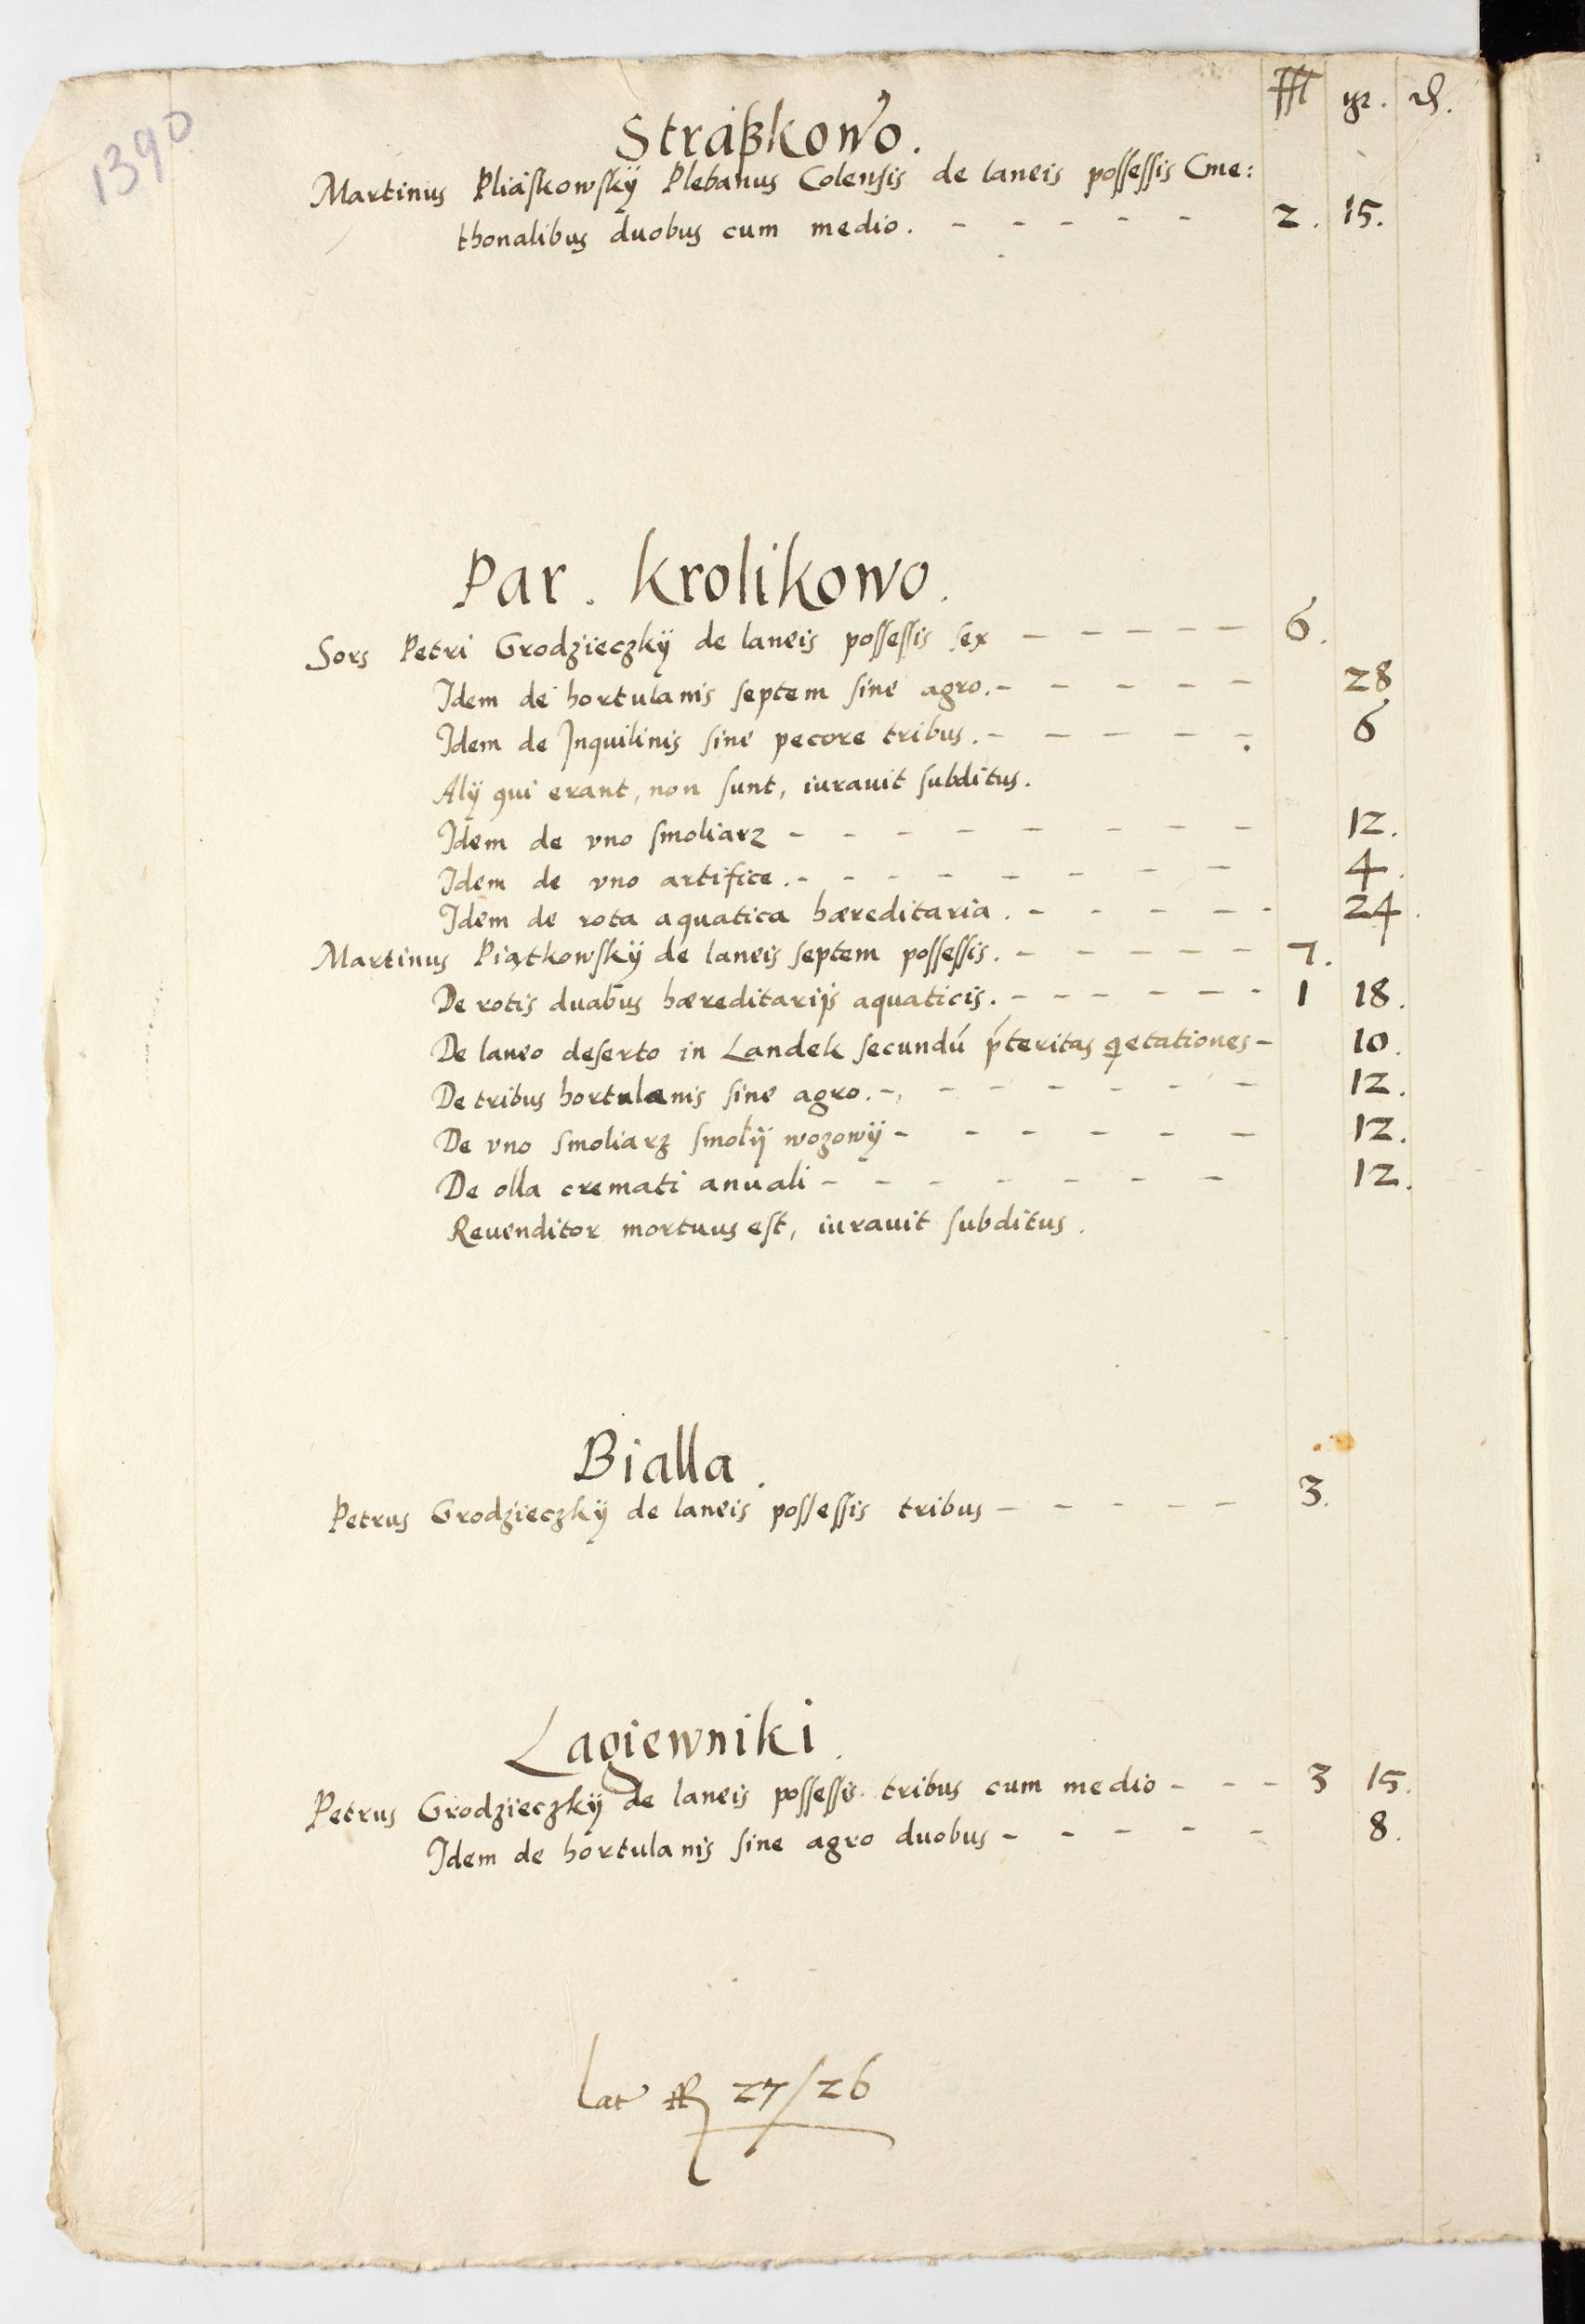 1390
ffl gr. d.
Straßkowo.
Martinus Pliaskowskÿ Plebanus Colensis de laneis possessis Cme:
thonalibus duobus cum medio. - - - - - 2. 15.
Par. Krolikowo.
Sors Petri Grodzieczkÿ de laneis possessis sex - - - - - 6.
Idem de hortulanis septem sine agro. - - - - - 28
Idem de Inquilinis sine pecore tribus. - - - - - 6
Alÿ qui erant, non sunt, iurauit subditus.
Idem de vno smoliarz - - - - - - - - 12.
Idem de vno artifice. - - - - - - - - 4.
Idem de rota aquatica hæreditaria. - - - - - 24.
Martinus Piątkowskÿ de laneis septem possessis. - - - - - 7.
De rotis duabus hæreditarijs aquaticis. - - - - - - 1 18.
De laneo deserto in Landek secundú ṕteritas qietationes - 10.
De tribus hortulanis sine agro. - - - - - - - 12.
De vno smoliarz smolÿ wozowÿ - - - - - - 12.
De olla cremati anuali - - - - - - - 12.
Reuenditor mortuus est, iurauit subditus.
Bialla.
Petrus Grodzieczkÿ de laneis possessis tribus - - - - - 3.
Lagiewniki.
Petrus Grodzieczkÿ de laneis possessis tribus cum medio - - - 3 15.
Idem de hortulanis sine agro duobus - - - - - 8.
Lat 27/26